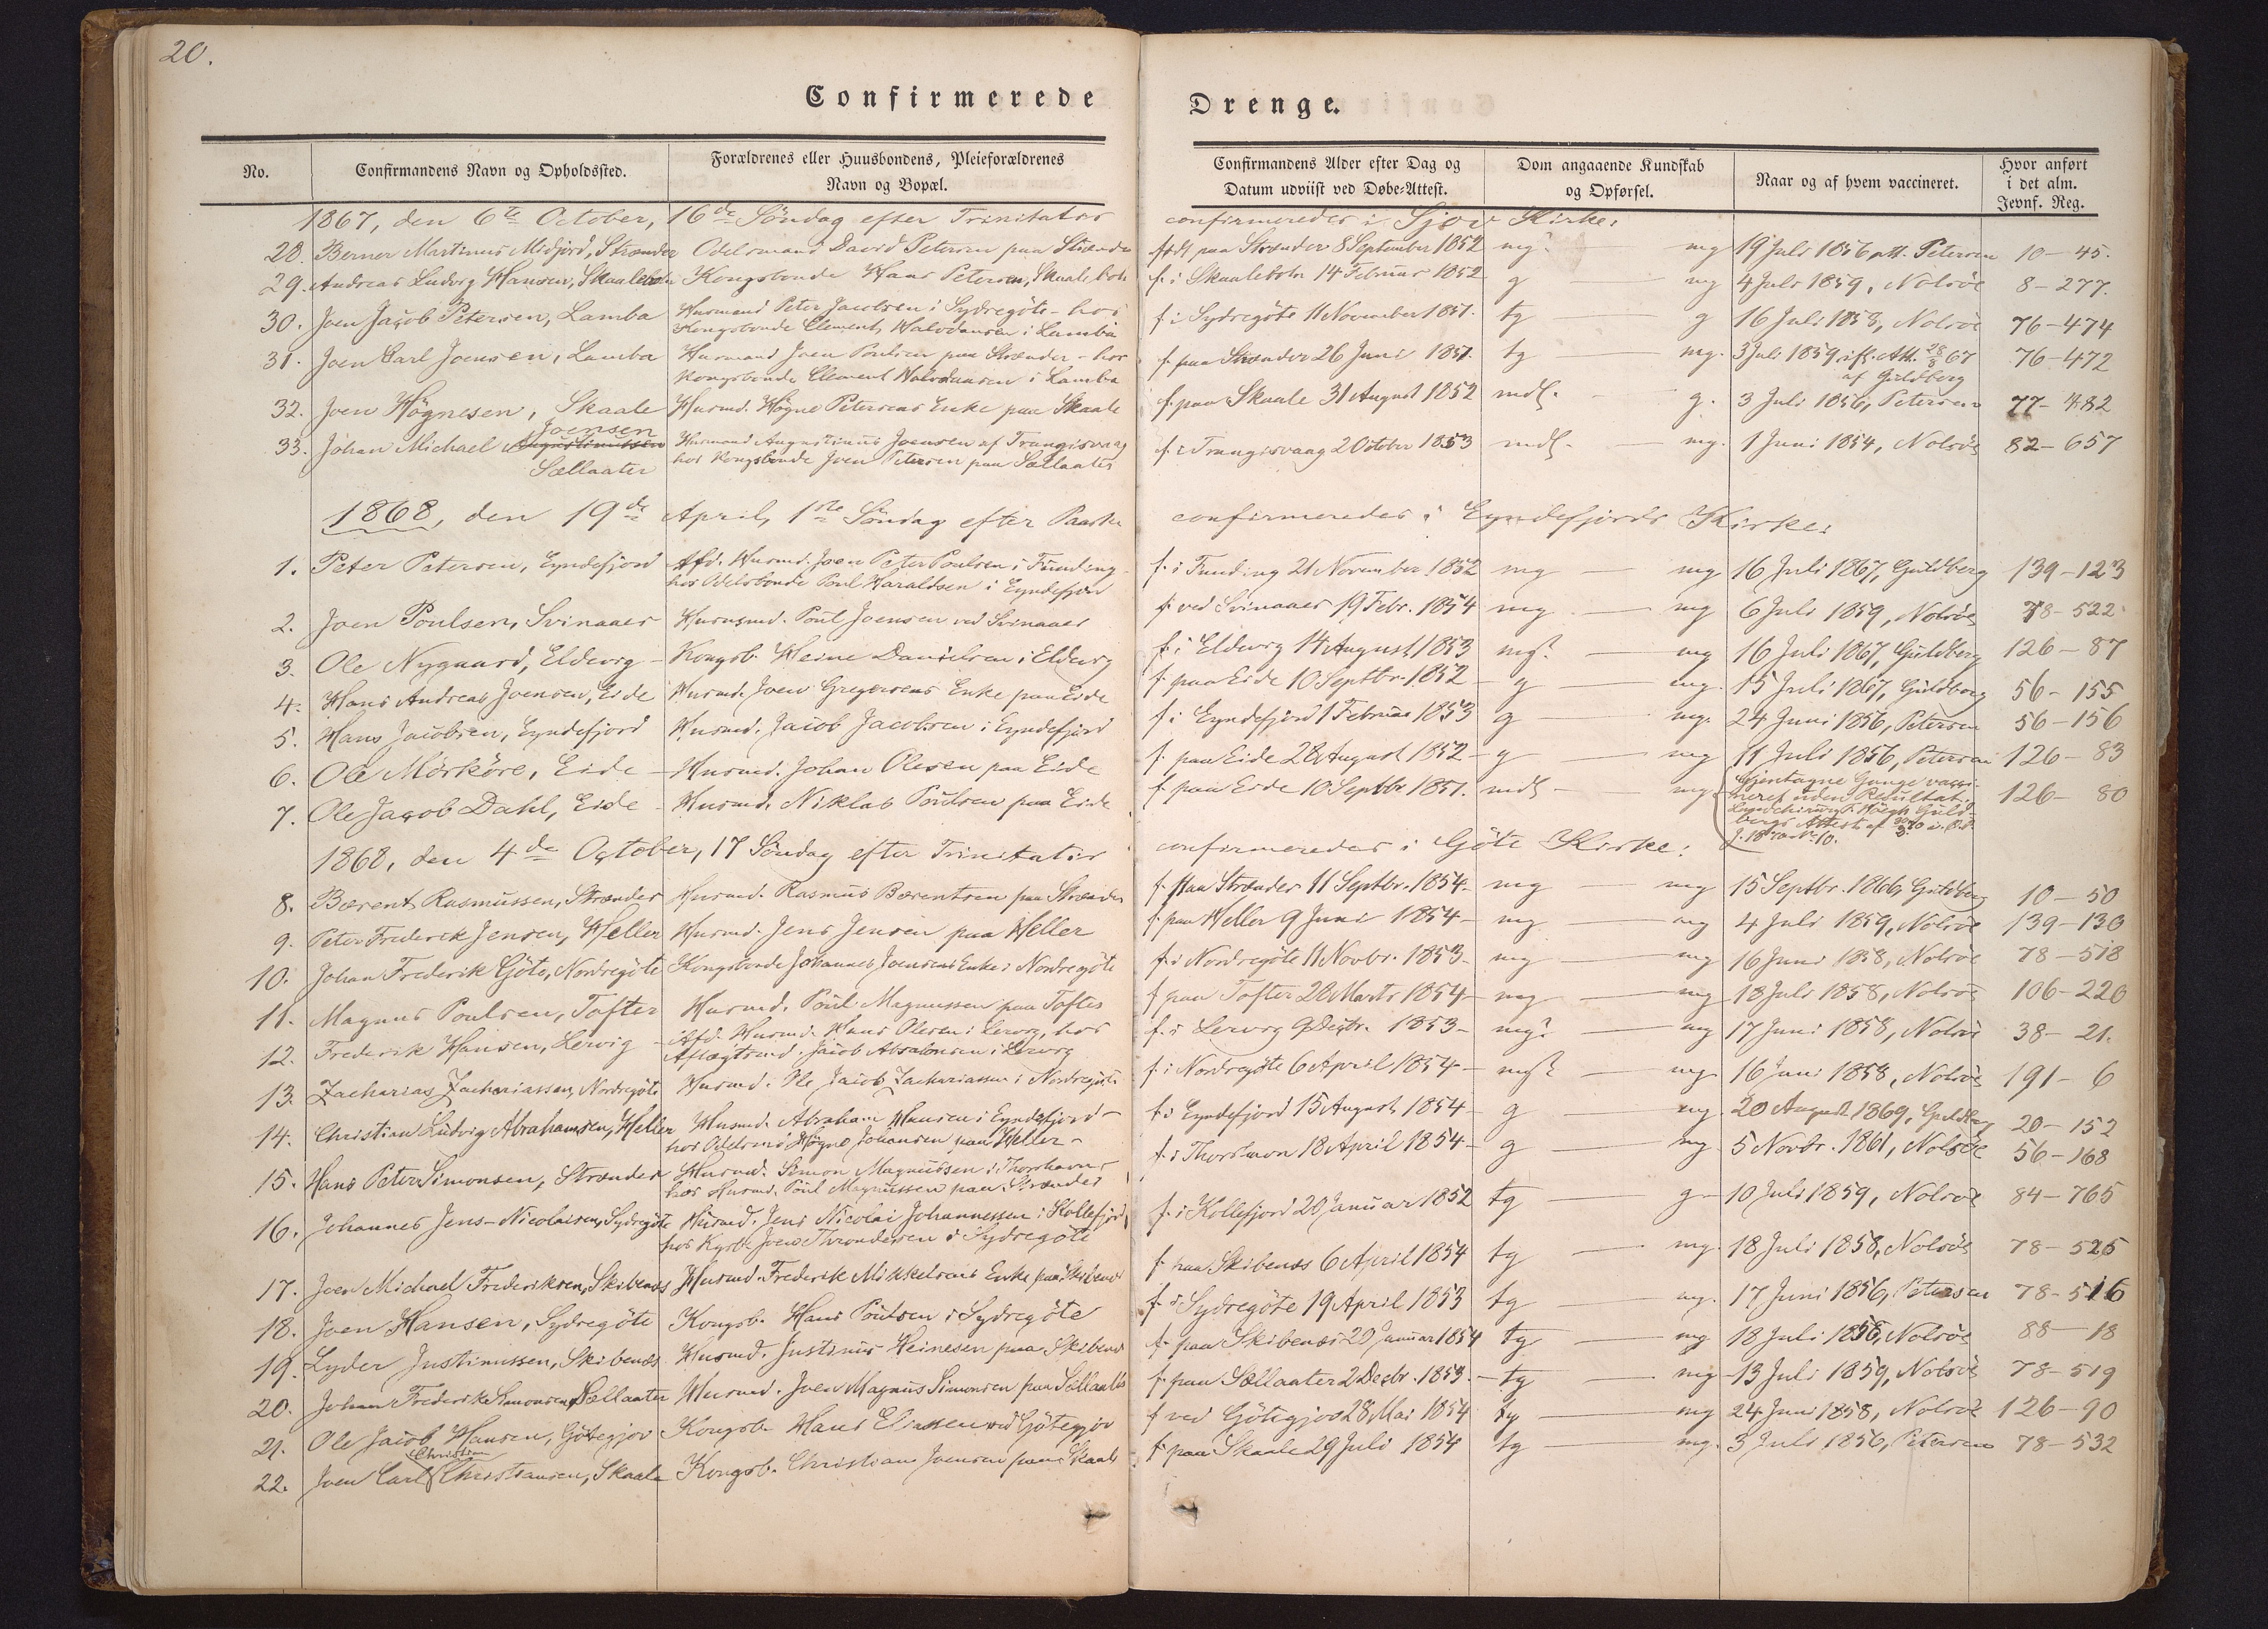 20.
Confirmerede Drenge.
No. Confirmandens Navn og Opholdssted. Forældrenes eller Huusbondens, Pleieforældrenes Navn og Bopæl. Confirmandens Alder efter Dag og Datum udviist ved Døbe-Attest. Dom angaaende Kundskab og Opførsel. Naar og af hvem vaccineret. Hvor anført i det alm. Jevnf. Reg.
1867, den 6te October, 16de Søndag efter Trinitatis confirmeredes i Sjov Kirke:
28. Berner Martinus Midjord, Strænder Odelsmand David Petersen paa Strænder født paa Strænder 8 September 1852 mg? mg 19 Juli 1856 att. Petersen 10-45.
29. Andreas Ludvig Hansen, Skaalebotn Kongsbonde Hans Petersen, Skaalebotn f. i Skaalebotn 14 Februar 1852 g mg 4 Juli 1859, Nolsöe 8-277.
30. Joen Jacob Petersen, Lamba Husmand Peter Jacobsen i Sydregöte - hos f. i Sydregöte 11 November 1851. tg g 16 Juli 1858, Nolsöe 76-474
Kongsbonde Clement Halvdansen i Lamba
31. Joen Carl Joensen, Lamba Husmand Joen Poulsen paa Strænder - hos f. paa Strænder 26 Juni 1851. tg mg. 3 Juli 1859 ifl. Att. 28/8 67 76-472
Kongsbonde Clement Halvdansen i Lamba af Guldberg
32. Joen Högnesen, Skaale Husmd. Högne Petersens Enke paa Skaale f. paa Skaale 31 August 1852 mdl. g. 3 Juli 1856, Petersen 77-482
Joensen
33. Johan Michael Augustinussen Husmand Augustinus Joensen af Trangisvaag f. i Trangisvaag 2 October 1853 mdl. mg. 1 Juni 1854, Nolsöe 82-657
Sællaater hos Kongsbonde Joen Petersen paa Sællaater
1868, den 19de April, 1ste Søndag efter Paaske confirmeredes i Eyndefjords Kirke:
1. Peter Petersen, Eyndefjord Afd. Husmd. Joen Peter Poulsen i Funding f. i Funding 21 November 1852 mg mg 16 Juli 1867, Guldberg 139-123
hos Odelsbonde Poul Haraldsen i Eyndefjord
2. Joen Poulsen, Svinaaer Husmd. Poul Joensen ved Svinaaer f. ved Svinaaer 19 Febr. 1854 mg mg 6 Juli 1859, Nolsöe 78-522
3. Ole Nygaard, Eldevig Kongsb. Heine Danielsen i Eldevig f. i Eldevig 14 August 1853 mg? mg 16 Juli 1867, Guldberg 126-87
4. Hans Andreas Joensen, Eide Husmd. Joen Gregersens Enke paa Eide f. paa Eide 10 Septbr. 1852 g mg. 15 Juli 1867, Guldberg 56-155
5. Hans Jacobsen, Eyndefjord Husmd. Jacob Jacobsen i Eyndefjord f. i Eyndefjord 1 Februar 1853 g mg. 24 Juni 1856, Petersen 56-156
6. Ole Mörköre, Eide Husmd. Johan Olesen paa Eide f. paa Eide 28 August 1852 g mg 11 Juli 1856, Petersen 126-83
7. Ole Jacob Dahl, Eide Husmd. Niklas Poulsen paa Eide f. paa Eide 10 Septbr. 1851. mdl mg Gjentagne Gange vacci-
neret uden Resultat. 126-80
bergs Attest af
1868, den 4de October, 17 Søndag efter Trinitatis confirmeredes i Göte Kirke:
8. Bærent Rasmussen, Strænder Husmd. Rasmus Bærentsen paa Strænder f. paa Strænder 11 Septbr. 1854 mg mg 15 Septbr. 1866, Guldberg 10-50
9. Peter Frederik Jensen, Heller Husmd. Jens Jensen paa Heller f. paa Heller 9 Juni 1854 mg mg 4 Juli 1859, Nolsöe 139-130
10. Johan Frederik Göte, Nordregöte Kongsbonde Johannes Joensens Enke i Nordregöte f. i Nordregöte 11 Novbr. 1853 mg mg 16 Juni 1858, Nolsöe 78-518
11. Magnus Poulsen, Tofter Husmd. Poul Magnussen paa Tofter f. paa Tofter 28 Marts 1854 mg mg 18 Juli 1858, Nolsöe 106-220
12. Frederik Hansen, Lervig Afd. Husmd. Hans Olesen i Lervig, hos f. i Lervig 9 Decbr. 1853 mg? mg 17 Juni 1858, Nolsöe 38-21.
Aftægtsmd. Jacob Absalonsen i Lervig
13. Zacharias Zachariassen, Nordregöte Husmd. Ole Jacob Zachariassen i Nordregöte f. i Nordregöte 6 April 1854 mg? mg 16 Juni 1858, Nolsöe 191-6
14. Christian Ludvig Abrahamsen, Heller Husmd. Abraham Hansen i Eyndefjord - f. i Eyndefjord 15 August 1854 g mg 20 August 1869, Guldberg 20-152
hos Odelsmd. Högne Johansen paa Heller -
15. Hans Peter Simonsen, Strænder Husmd. Simon Magnussen i Thorshavn - f. i Thorshavn 18 April 1854 g mg 5 Novbr. 1861, Nolsöe 56-168
hos Husmd. Poul Magnussen paa Strænder
16. Johannes Jens-Nicolaisen, Sydregöte Husmd. Jens Nicolai Johannessen i Kollefjord f. i Kollefjord 20 Januar 1852 tg g 10 Juli 1859, Nolsöe 84-765
hos Kgsb. Joen Throndesen i Sydregöte
17. Joen Michael Frederiksen, Skibenæs Husmd. Frederik Mikkelsens Enke paa Skibenæs f. paa Skibenæs 6 April 1854 tg mg. 18 Juli 1858, Nolsöe 78-525
18. Joen Hansen, Sydregöte Kongsb. Hans Poulsen i Sydregöte f. i Sydregöte 19 April 1853 tg mg. 17 Juni 1856, Petersen 78-516
19. Lyder Justinussen, Skibenæs Husmd. Justinus Heinesen paa Skibenæs f. paa Skibenæs 20 Januar 1854 tg mg 18 Juli 1858, Nolsöe 88-18
20. Johan Frederik Simonsen, Sællaater Husmd. Joen Magnus Simonsen paa Sællaater f. paa Sællaater 2 Decbr. 1853. tg mg 13 Juli 1859, Nolsöe 78-519
21. Ole Jacob Hansen, Götegjov Kongsb. Hans Eliassen ved Götegjov f. ved Götegjov 28 Mai 1854 tg mg 24 Juni 1858, Nolsöe 126-90
Christian
22. Joen Carl Christiansen, Skaale Kongsb. Christian Joensen paa Skaale f. paa Skaale 29 Juli 1854 tg mg. 3 Juli 1856, Petersen 78-532